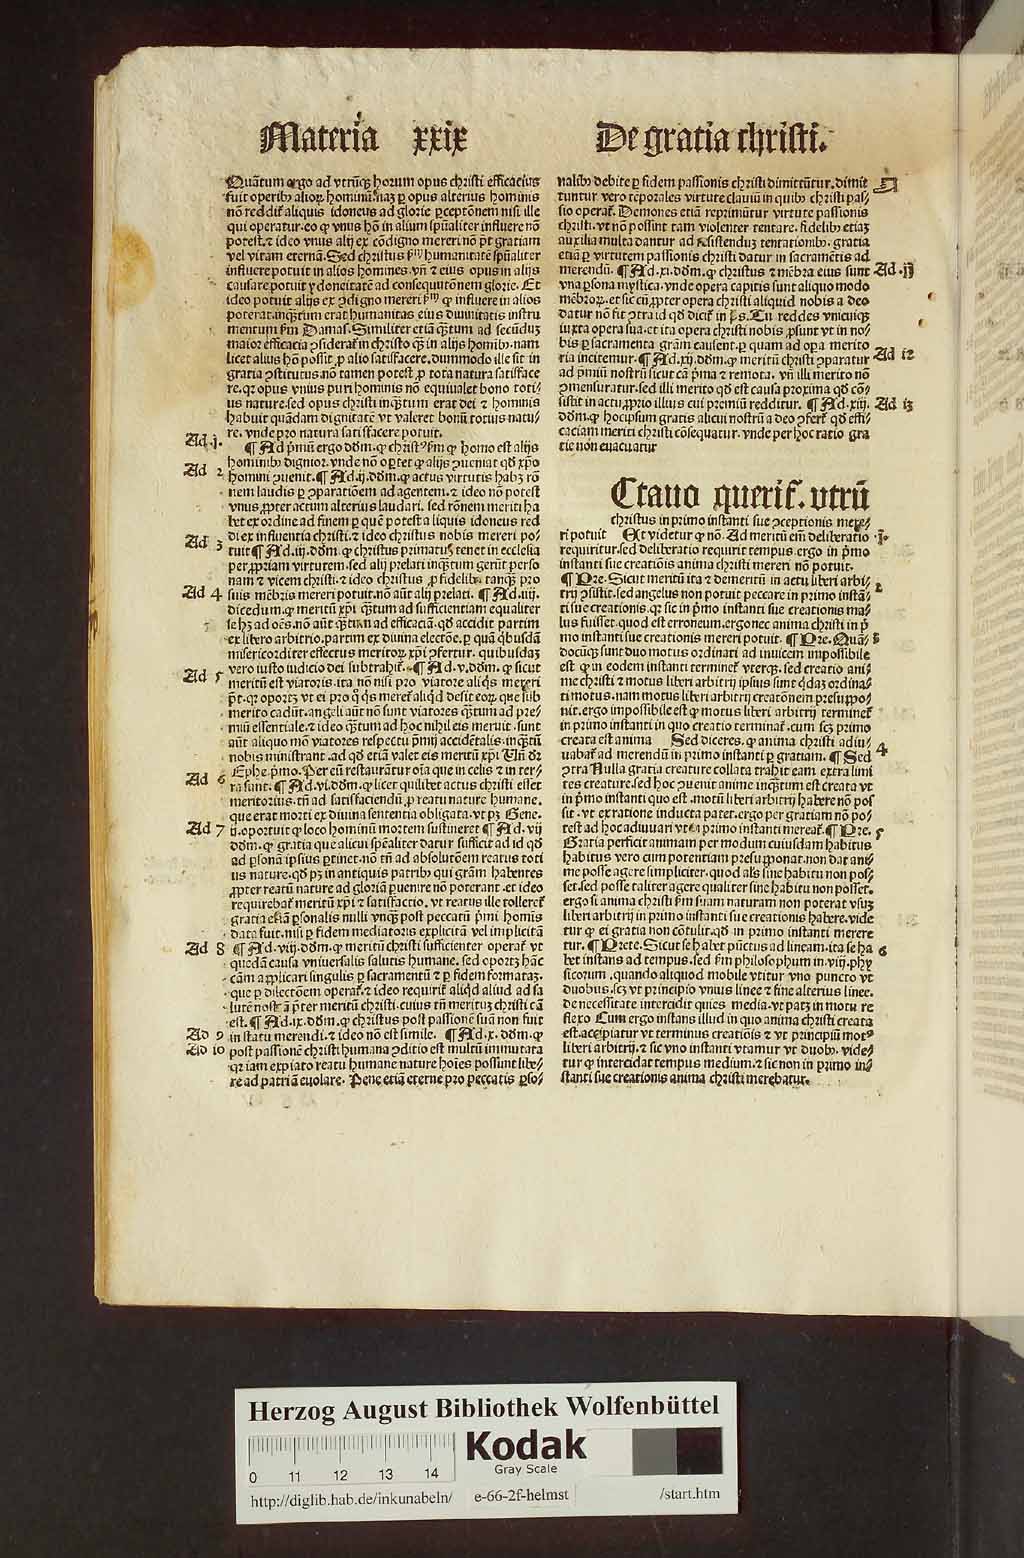 Materia xxix
De gratia christi.
Quātum ergo ad vtrūqꝫ horum opus christi efficacius
fuit operibꝰ alioꝝ hominū. naꝫ ꝑ opus alterius hominis
nō reddit᷑ aliquis idoneus ad glorie ꝑceptōnem nisi ille
qui operatur. eo ꝙ vnus hō in alium spūaliter influere nō
potest. ⁊ ideo vnus alij ex cōdigno mereri nō pōt gratiam
vel vitam eternā. Sed christus ẜm humanitatē spūaliter
influere potuit in alios homines. vñ ⁊ eius opus in alijs
causare potuit ydoneitatē ad consequutōnem glorie. Et
ideo potuit alijs ex ꝯdigno mereri ẜm ꝙ influere in alios
poterat. inqꝫtum erat humanitas eius diuinitatis instru
mentum ẜm Damas. Similiter etiā qꝫtum ad secūduꝫ
maior efficacia ꝯsiderat᷑ in christo qꝫ in alijs homibꝰ. nam
licet alius hō possit ꝓ alio satisfacere. dummodo ille sit in
gratia ꝯstitutus. nō tamen potest ꝓ tota natura satisface
re. qꝛ opus vnius puri hominis nō equiualet bono toti⸗
us nature. sed opus christi inqꝫtum erat dei ⁊ hominis
habuit quādam dignitatē vt valeret bonū totius natu⸗
re. vnde pro natura satisfacere potuit.
Ad .j.
¶ Ad pͥmū ergo dōm. ꝙ christꝰ ẜm ꝙ homo est alijs
hominibꝰ dignior. vnde nō oꝑtet ꝙ alijs ꝯueniat qd̄ xp̄o
Ad 2
homini ꝯuenit. ¶ Ad .ij. dōm. ꝙ actus virtutis habꝫ rō
nem laudis ꝑ ꝯparatiōem ad agentem. ⁊ ideo nō potest
vnus ꝓpter actum alterius laudari. sed rōnem meriti ha
bet ex ordine ad finem ꝑ quē potest aliquis idoneus red
di ex influentia christi. ⁊ ideo christus nobis mereri po⸗
Ad 3
tuit ¶ Ad .iij. dōm. ꝙ christus primatuꝫ tenet in ecclesia
per ꝓpriam virtutem. sed alij prelati inqꝫtum gerūt perso
nam ⁊ vicem christi. ⁊ ideo christus ꝓ fidelibꝰ. tanqꝫ pro
Ad 4
suis mēbris mereri potuit. nō aūt alij prelati. ¶ Ad .iiij.
dicedum. ꝙ meritū xp̄i qꝫtum ad sufficientiam equaliter
se hꝫ ad oēs. nō aūt qꝫtum ad efficaciā. qd̄ accidit partim
ex libero arbitrio. partim ex diuina electōe. ꝑ quā qͥbusdā
misericorditer effectus meritoꝝ xp̄i ꝯfertur. quibusdaꝫ
vero iusto iudicio dei subtrahit᷑. ¶ Ad .v. dōm. ꝙ sicut
Ad 5
meritū est viatoris. ita nō nisi pro viatore aliqͥs mereri
pōt. qꝛ oportꝫ vt ei pro qͦ qͥs meret᷑ aliqͥd desit eoꝝ. que sub
merito cadūt. angeli aūt nō sunt viatores qꝫtum ad pre⸗
miū essentiale. ⁊ ideo qꝫtum ad hoc nihil eis meruit. sunt
aūt aliquo mō viatores respectu pͥmij accidētalis. inqꝫtū
nobis ministrant. ad qd̄ etiā valet eis meritū xp̄i Uñ dr̄
Ephe. pͥmo. Per eū restaurātur oīa que in celis ⁊ in ter⸗
Ad 6
ra sunt. ¶ Ad .vi. dōm. ꝙ licet quilibet actus christi esset
meritorius. tn̄ ad satisfaciendū ꝓ reatu nature humane.
que erat morti ex diuina sententia obligata. vt pꝫ Gene.
Ad 7
ij. oportuit ꝙ loco hominū mortem sustineret ¶ Ad .vij
dōm. ꝙ gratia que alicui spēaliter datur sufficit ad id qd̄
ad ꝑsonā ipsius ꝑtinet. nō tn̄ ad absolutōem reatus toti
us nature. qd̄ pꝫ in antiquis patribꝰ qui grām habentes
ꝓpter reatū nature ad gloriā ꝑuenire nō poterant. et ideo
requirebat᷑ meritū xp̄i ⁊ satisfactio. vt reatus ille tolleret᷑
gratia etiā ꝑsonalis nulli vnqꝫ post peccatū pͥmi homīs
data fuit. nisi ꝑ fidem mediatoris explicitā vel implicitā
Ad 8
¶ Ad .viij. dōm. ꝙ meritū christi sufficienter operat᷑ vt
quedā causa vniuersalis salutis humane. sed oportꝫ hāc
cām applicari singulis ꝑ sacramentū ⁊ ꝑ fidem formataꝫ.
que ꝑ dilectōem operat᷑. ⁊ ideo requirit᷑ aliqͥd aliud ad sa
lutē nostrā ꝑter meritū christi. cuius tn̄ merituꝫ christi cā
est. ¶ Ad .ix. dōm. ꝙ christus post passionē suā non fuit
Ad 9
in statu merendi. ⁊ ideo nō est simile. ¶ Ad .x. dōm. ꝙ
Ad 10
post passionē christi humana ꝯditio est multū immutata
qꝛ iam expiato reatu humane nature hoīes possunt libe⸗
re ad patriā euolare. Pene etiā eterne pro peccatis ꝑso⸗
nalibꝰ debite ꝑ fidem passionis christi dimittūtur. dimit
tuntur vero tēporales virtute clauiū in quibꝰ christi pas⸗
sio operat᷑. Demones etiā reprimūtur virtute passionis
christi. vt nō possint tam violenter tentare. fidelibꝰ etiaꝫ
auxilia multa dantur ad resistenduꝫ tentationibꝰ. gratia
etiā ꝑ virtutem passionis christi datur in sacramētis ad
merendū. ¶ Ad .xi. dōm. ꝙ christus ⁊ mēbra eius sunt
Ad .ij
vna ꝑsona mystica. vnde opera capitis sunt aliquo modo
mēbroꝝ. et sic cū ꝓpter opera christi aliquid nobis a deo
datur nō fit ꝯtra id qd̄ dicit᷑ in ps. Tu reddes vnicuiqꝫ
iuxta opera sua. et ita opera christi nobis ꝓsunt vt in no⸗
bis ꝑ sacramenta grām causent. ꝑ quam ad opera merito
ria incitemur. ¶ Ad .xij. dōm. ꝙ meritū christi ꝯparatur
Ad 12
ad pͥmiū nostrū sicut cā pͥma ⁊ remota. vñ illi merito nō
ꝯmensuratur. sed illi merito qd̄ est causa proxima qd̄ cō⸗
sistit in actu ꝓprio illius cui premiū redditur. ¶ Ad .xiij.
Ad 13
dōm. ꝙ hocipsum gratis alicui nostrū a deo ꝯfert᷑ qd̄ effi⸗
caciam meriti christi cōsequatur. vnde per hoc ratio gra
tie non euacuatur
Ctauo querit᷑. vtrū
christus in primo instanti sue ꝯceptionis mere⸗
ri potuit Et videtur ꝙ nō. Ad meritū em̄ deliberatio
.j.
requiritur. sed deliberatio requirit tempus. ergo in pͥmo
instanti sue creatiōis anima christi mereri nō potuit.
¶ Pre. Sicut meritū ita ⁊ demeritū in actu liberi arbi⸗
2
trij ꝯsistit. sed angelus non potuit peccare in primo instā⸗
ti sue creationis. qꝛ sic in pͥmo instanti sue creationis ma⸗
lus fuisset. quod est erroneum. ergo nec anima christi in pͥ
mo instanti sue creationis mereri potuit. ¶ Pre. Quā⸗
3
docūqꝫ sunt duo motus ordinati ad inuicem impossibile
est ꝙ in eodem instanti terminet᷑ vterqꝫ. sed creatio ani⸗
me christi ⁊ motus liberi arbitrij ipsius sunt qͥdaꝫ ordina⸗
ti motus. nam motus liberi arbitrij creatōnem presuppo⸗
nit. ergo impossibile est ꝙ motus liberi arbitrij terminet᷑
in primo instanti in quo creatio terminat᷑. cum scꝫ primo
creata est anima Sed diceres. ꝙ anima christi adiu⸗
4
uabat᷑ ad merendū in primo instanti ꝑ gratiam. ¶ Sed
ꝯtra Nulla gratia creature collata trahit eam extra limi
tes creature. sed hoc ꝯuenit anime inqꝫtum est creata vt
in pͥmo instanti quo est. motū liberi arbitrij habere nō pos
sit. vt ex ratione inducta patet. ergo per gratiam nō po⸗
test ad hoc adiuuari vt ei primo instanti mereat᷑. ¶ Pre.
5
Gratia perficit animam per modum cuiusdam habitus
habitus vero cum potentiam presupponat. non dat ani⸗
me posse agere simpliciter. quod als̄ sine habitu non pos⸗
set. sed posse taliter agere qualiter sine habitu non posset.
ergo si anima christi ẜm suam naturam non poterat vsuꝫ
liberi arbitrij in primo instanti sue creationis habere. vide
tur ꝙ ei gratia non cōtulit. qd̄ in primo instanti merere
tur. ¶ Prete. Sicut se habet pūctus ad lineam. ita se ha
6
bet instans ad tempus. sed ẜm philosophum in .viij. phy
sicorum. quando aliquod mobile vtitur vno puncto vt
duobus. scꝫ vt principio vnius linee ⁊ fine alterius linee.
de necessitate intercidit quies media. vt patꝫ in motu re
flexo Cum ergo instans illud in quo anima christi creata
est. accipiatur vt terminus creatiōis ⁊ vt principiū motꝰ
liberi arbitrij. ⁊ sic vno instanti vtamur vt duobꝰ. vide⸗
tur ꝙ intercidat tempus medium. ⁊ sic non in primo in⸗
stanti sue creationis anima christi merebatur.
Herzog August Bibliothek Wolfenbüttel
Kodak
Gray Scale
0 11 12 13 14
http://diglib.hab.de/inkunabeln/ e-66-2f-helmst /start.htm